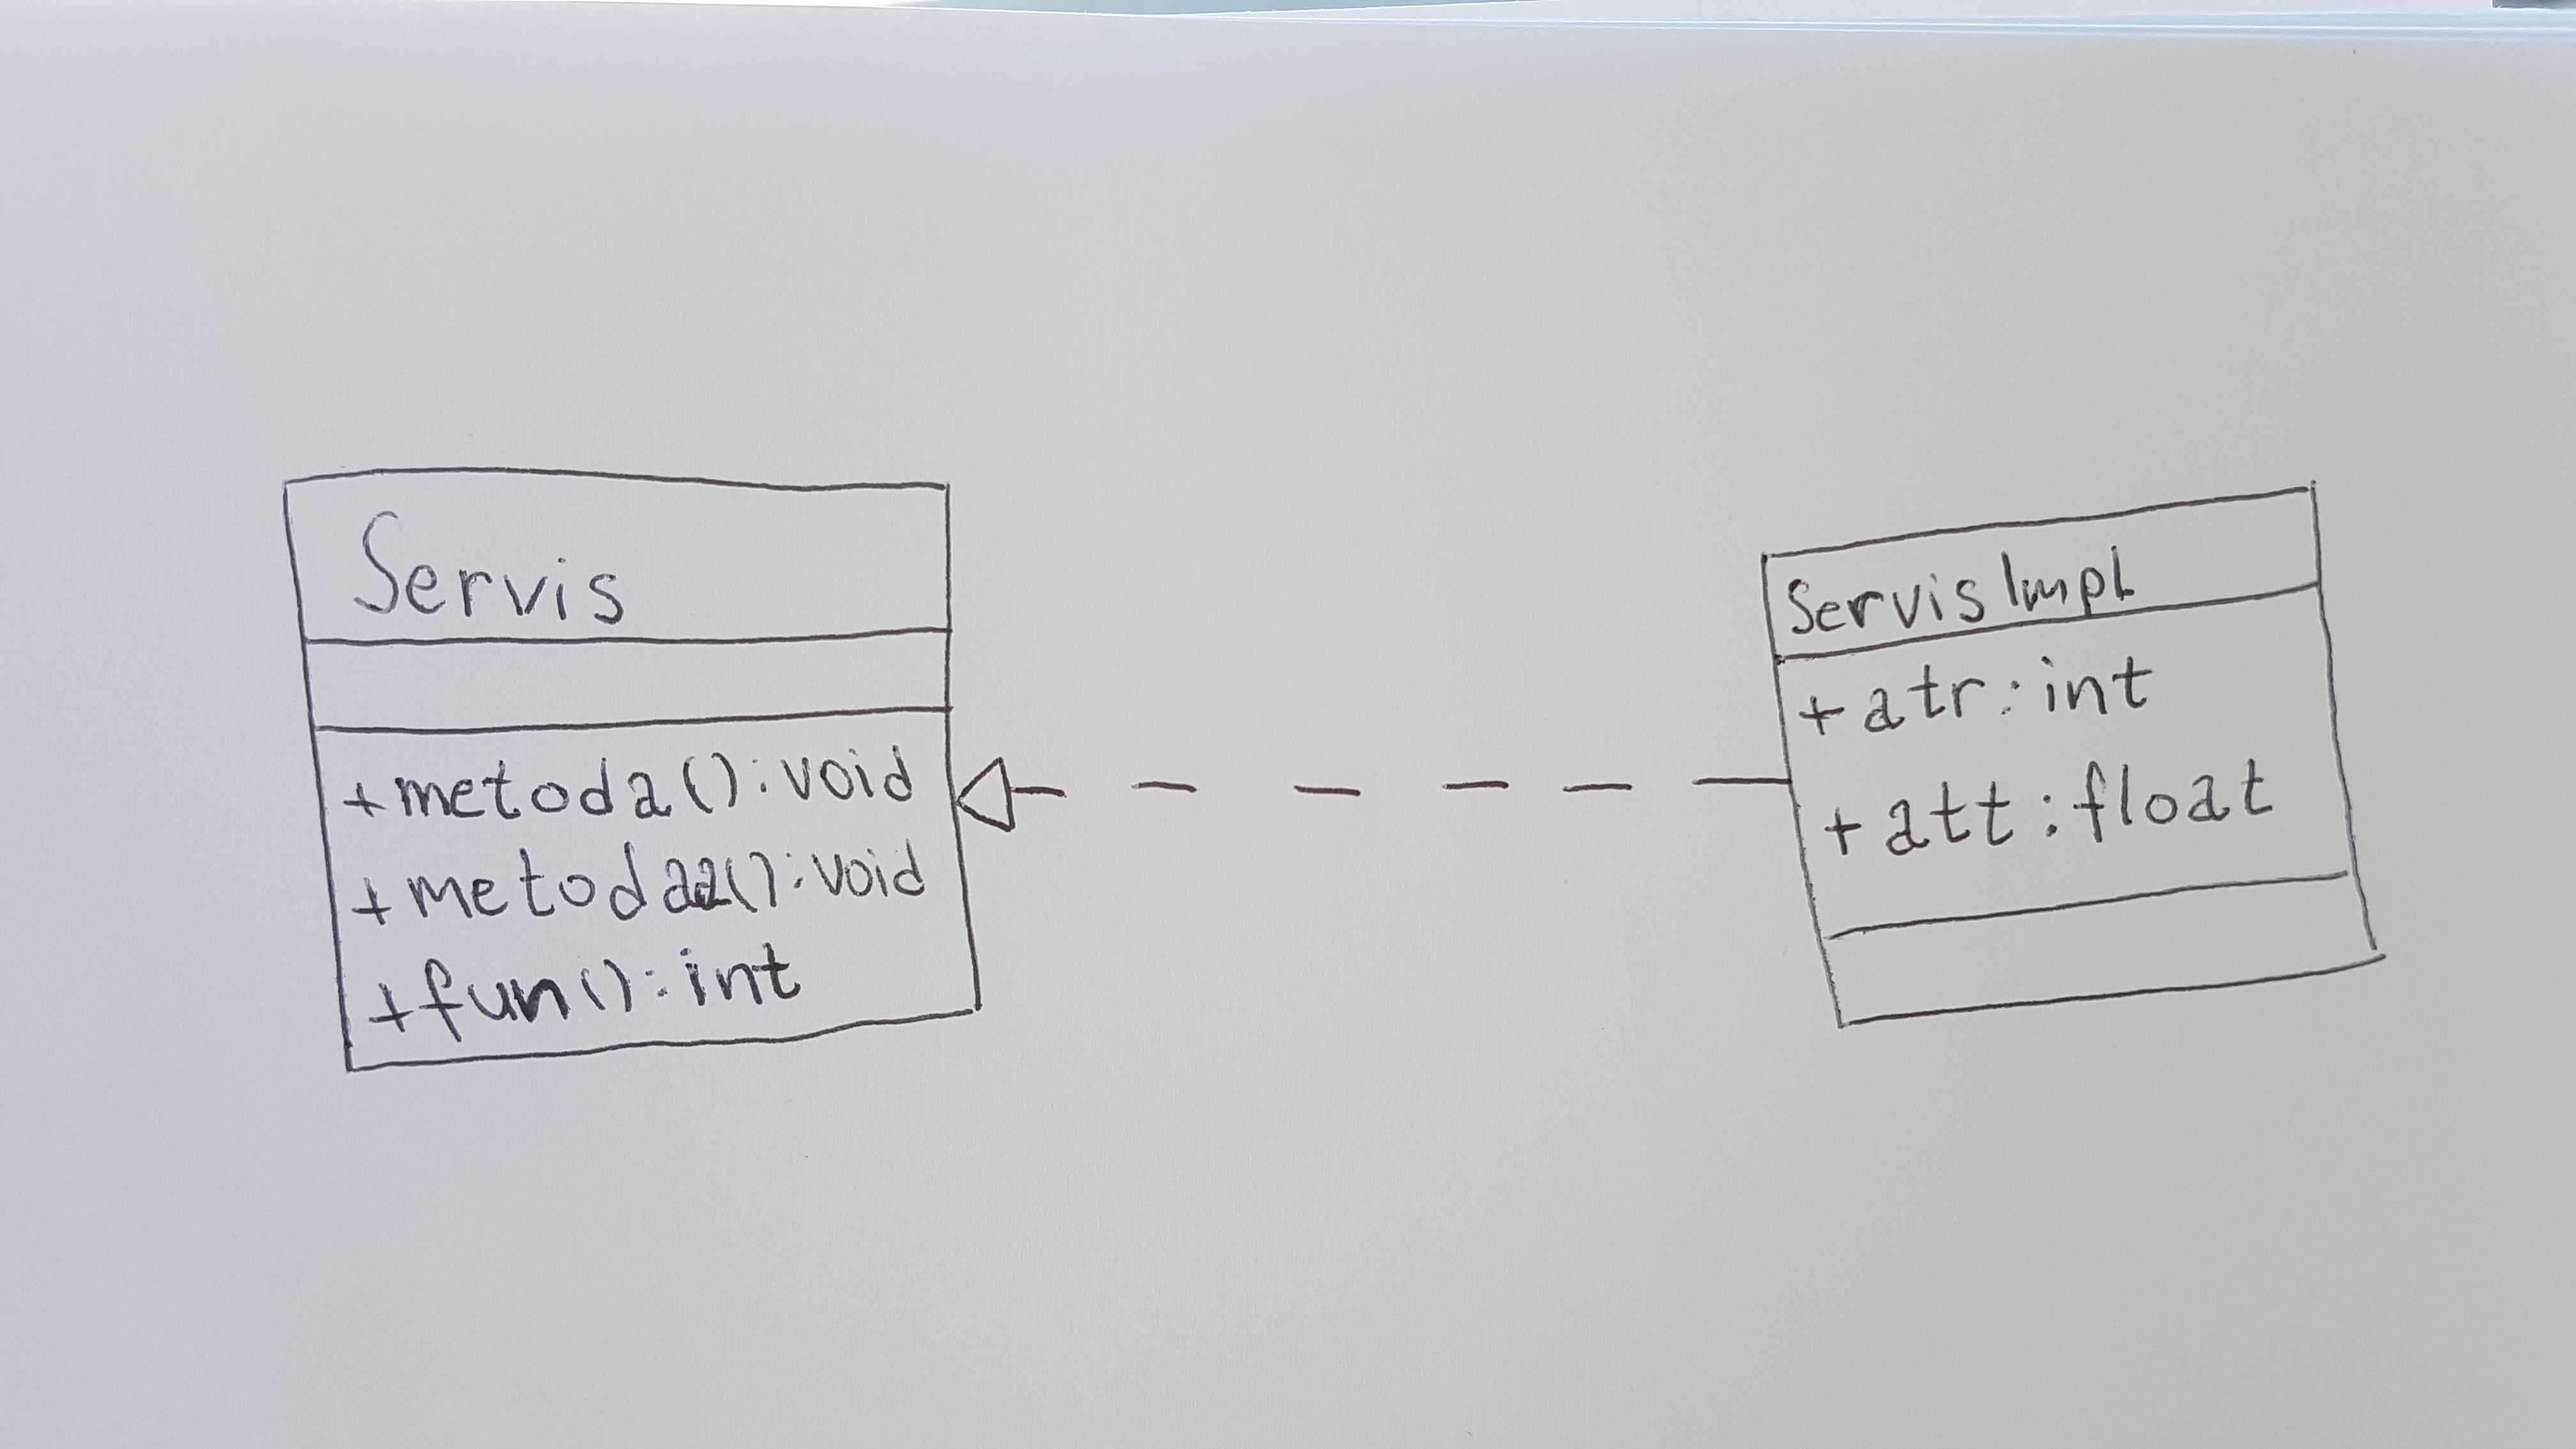 Servis
+metoda():void
+metoda2():void
+fun():int
ServisImpl
+atr:int
+att:float